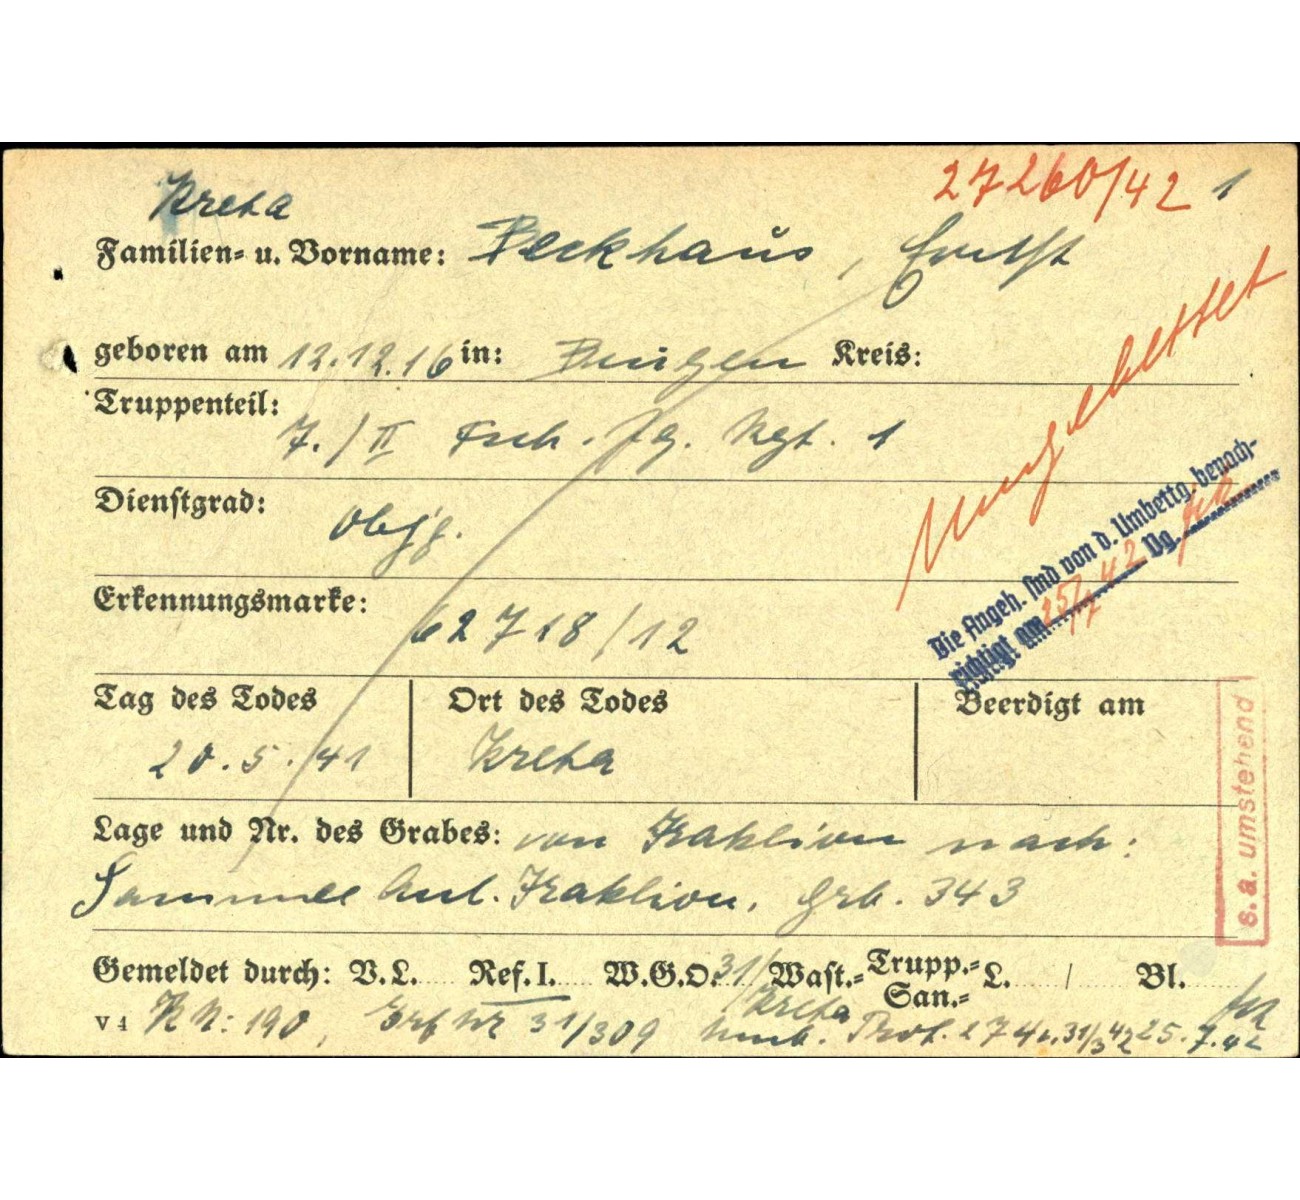 Kreta
27260/42 1
Familien- u. Vorname: Beckhaus, Ernst
geboren am 12.12.16 in: Kreis:
Truppenteil: 7./II Fsch. Jg. Rgt. 1
Umgebettet
Dienstgrad: Obgfr.
Die Angeh. sind von d. Umbettg. benach-
richtigt am 25/7 42 Vg.
Erkennungsmarke: 62718/12
Tag des Todes Ort des Todes Beerdigt am
20.5.41 Kreta
s. a. umstehend
Lage und Nr. des Grabes: von Iraklion nach:
Sammel Anl. Iraklion, Grb. 343
Gemeldet durch: V.L. Ref. I. W.G.O. 31/ Wast.- Trupp.- San.- L. / Bl.
Kreta
V 4 RN: 190, 31/309 Umb. Prot. 274 v. 31/3 42 25.7.42